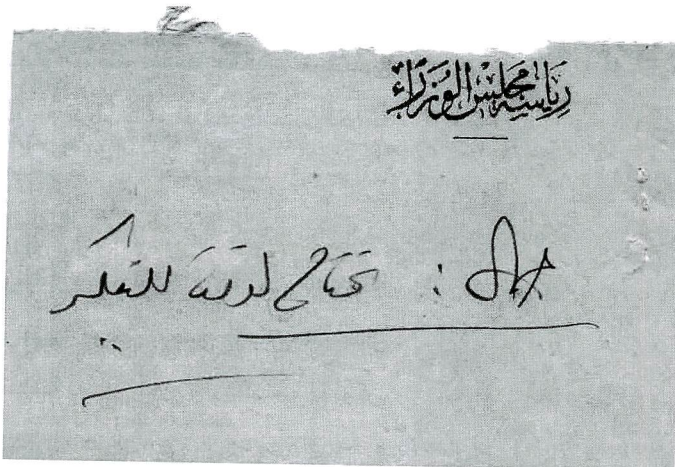 رئاسة مجلس الوزراء
: تحتاج لوقت للتفكير